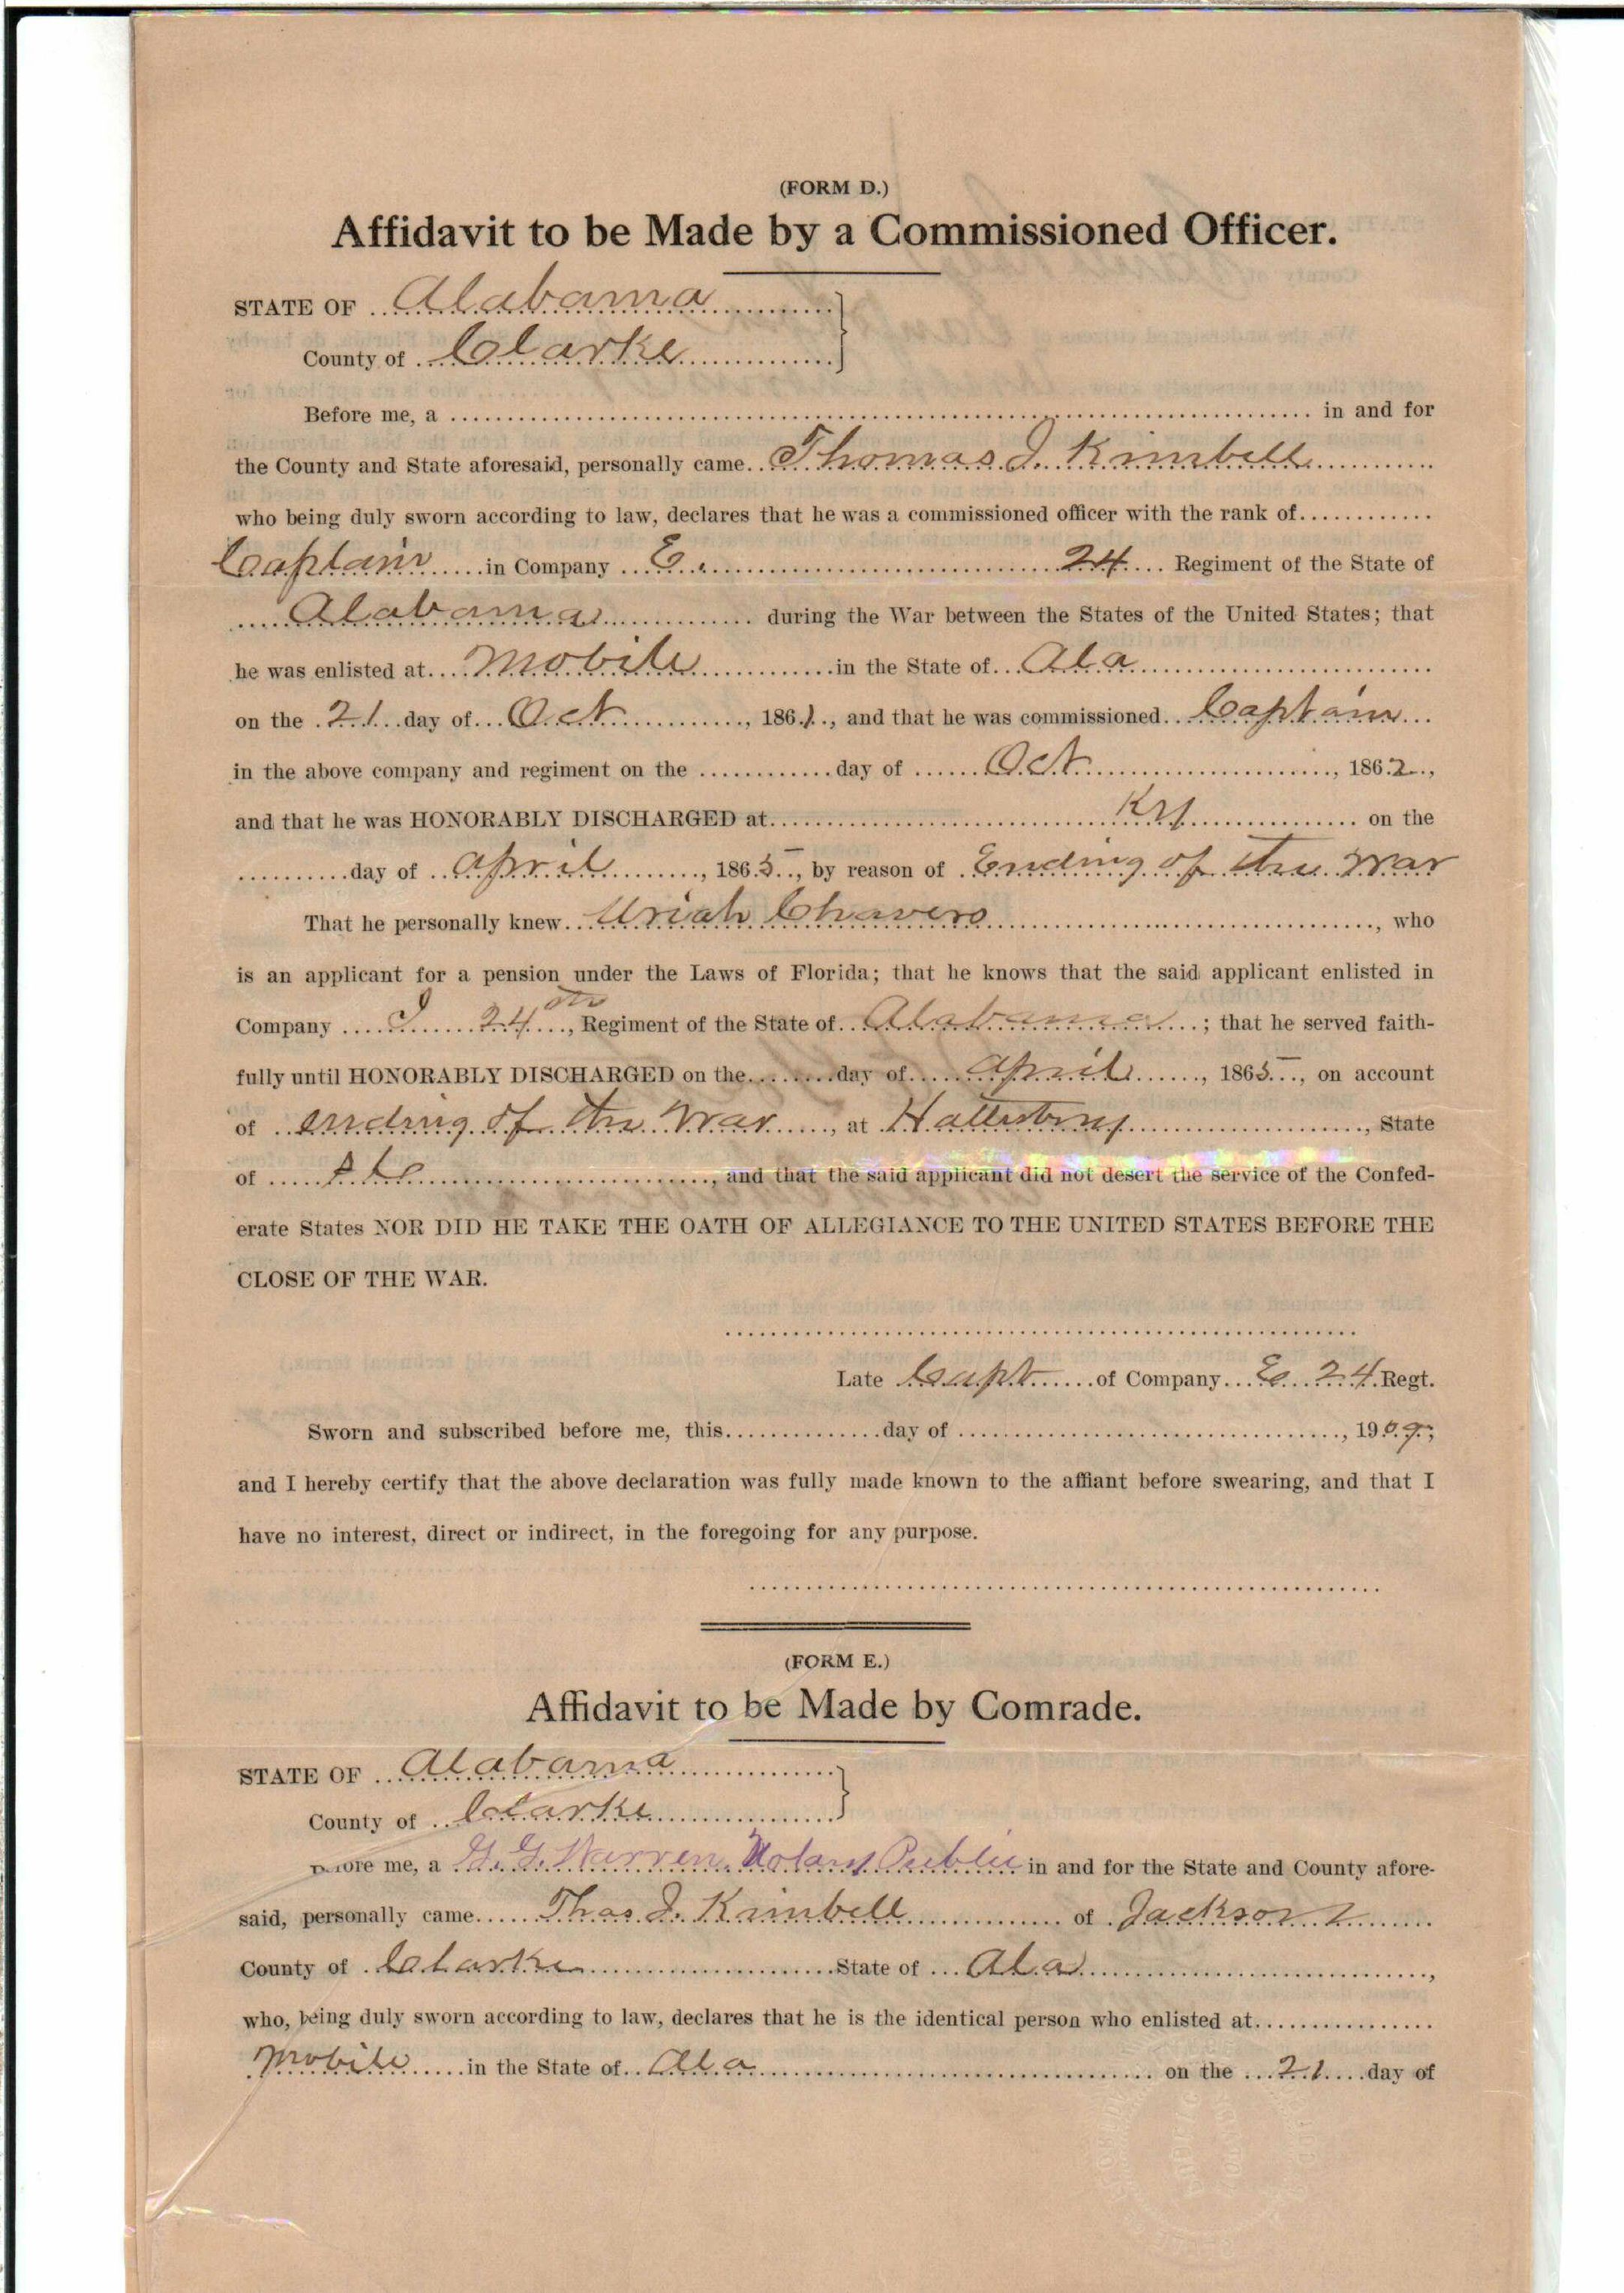 (FORM D.)
Affidavit to be Made by a Commissioned Officer.
STATE OF Alabama
County of Clarke
Before me, a in and for
the County and State aforesaid, personally came Thomas J. Kimbell
who being duly sworn according to law, declares that he was a commissioned officer with the rank of
Captain in Company E. 24 Regiment of the State of
Alabama during the War between the States of the United States; that
he was enlisted at Mobile in the State of Ala
on the 21 day of Oct, 1861, and that he was commissioned Captain
in the above company and regiment on the day of Oct, 1862,
and that he was HONORABLY DISCHARGED at Ky on the
day of April, 1865, by reason of Ending of the War
That he personally knew Uriah Chavers, who
is an applicant for a pension under the Laws of Florida; that he knows that the said applicant enlisted in
Company I 24th, Regiment of the State of Alabama; that he served faith-
fully until HONORABLY DISCHARGED on the day of April, 1865, on account
of ending of the War, at, State
of, and that the said applicant did not desert the service of the Confed-
erate States NOR DID HE TAKE THE OATH OF ALLEGIANCE TO THE UNITED STATES BEFORE THE
CLOSE OF THE WAR.
Late Capt of Company E. 24 Regt.
Sworn and subscribed before me, this day of, 1909,
and I hereby certify that the above declaration was fully made known to the affiant before swearing, and that I
have no interest, direct or indirect, in the foregoing for any purpose.
(FORM E.)
Affidavit to be Made by Comrade.
STATE OF Alabama
County of Clarke
Before me, a G. G. Warren, Notary Public in and for the State and County afore-
said, personally came Thos J. Kimbell of Jackson
County of Clarke State of Ala,
who, being duly sworn according to law, declares that he is the identical person who enlisted at
Mobile in the State of Ala on the 21 day of